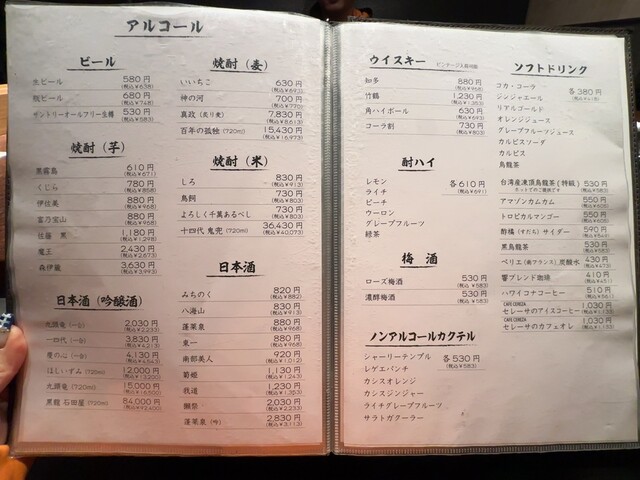 アルコール
ビール
生ビール 580円 (税込¥638)
瓶ビール 680円 (税込¥748)
サントリーオールフリー小瓶 530円 (税込¥583)
焼酎（芋）
黒霧島 610円 (税込¥671)
くじら 780円 (税込¥858)
伊佐美 880円 (税込¥968)
富乃宝山 880円 (税込¥968)
佐藤 黒 1,180円 (税込¥1,298)
魔王 2,430円 (税込¥2,673)
森伊蔵 3,630円 (税込¥3,993)
日本酒（吟醸酒）
九頭竜（一合） 2,030円 (税込¥2,233)
一四代（一合） 3,830円 (税込¥4,213)
度の心（一合） 4,130円 (税込¥4,543)
ほしいずみ（720ml） 12,000円 (税込¥13,200)
九頭竜（720ml） 15,000円 (税込¥16,500)
黒龍 石田屋（720ml） 84,000円 (税込¥92,400)
焼酎（麦）
いいちこ 630円 (税込¥693)
神の河 700円 (税込¥770)
真政（炙り麦） 7,830円 (税込¥8,613)
百年の孤独（720ml） 15,430円 (税込¥16,973)
焼酎（米）
しろ 830円 (税込¥913)
鳥飼 730円 (税込¥803)
よろしく千萬あるべし 730円 (税込¥803)
十四代 鬼兜（720ml） 36,430円 (税込¥40,073)
日本酒
みちのく 820円 (税込¥882)
八海山 830円 (税込¥913)
蓬莱泉 880円 (税込¥968)
東一 880円 (税込¥968)
南部美人 920円 (税込¥1,012)
菊姫 1,130円 (税込¥1,243)
我道 1,230円 (税込¥1,353)
獺祭 2,030円 (税込¥2,233)
蓬莱泉（吟） 2,830円 (税込¥3,113)
ウイスキー
知多 880円 (税込¥968)
竹鶴 1,230円 (税込¥1,353)
角ハイボール 630円 (税込¥693)
コーラ割 730円 (税込¥803)
酎ハイ
レモン 各610円 (税込¥691)
ライチ
ピーチ
ウーロン
グレープフルーツ
緑茶
梅酒
ローズ梅酒 530円 (税込¥583)
濃醇梅酒 530円 (税込¥583)
ノンアルコールカクテル
シャーリーテンプル 各530円 (税込¥583)
レゲエパンチ
カシスオレンジ
カシスジンジャー
ライチグレープフルーツ
サラトガクーラー
ソフトドリンク
コカ・コーラ 各380円 (税込¥418)
ジンジャエール
リアルゴールド
オレンジジュース
グレープフルーツジュース
カルピスソーダ
カルピス
烏龍茶
台湾産凍頂烏龍茶（特級） 530円 (税込¥583)
ホットでのご提供です
アマゾンカムカム 550円 (税込¥605)
トロピカルマンゴー 550円 (税込¥605)
酢橘（すだち）サイダー 590円 (税込¥649)
黒烏龍茶 530円 (税込¥583)
ペリエ（南フランス）炭酸水 430円 (税込¥473)
響ブレンド珈琲 410円 (税込¥451)
ハワイコナコーヒー 510円 (税込¥561)
CAFE CEREZA
セレーサのアイスコーヒー 1,030円 (税込¥1,133)
CAFE CEREZA
セレーサのカフェオレ 1,030円 (税込¥1,133)